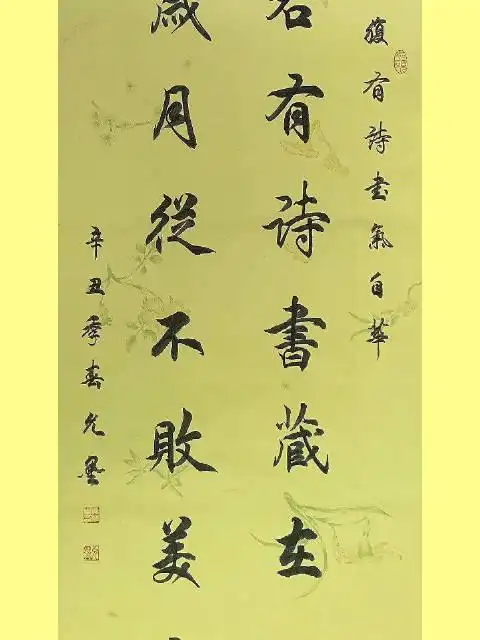 腹有詩書氣自華
若有詩書藏在
歲月從不敗美
辛丑季春允墨